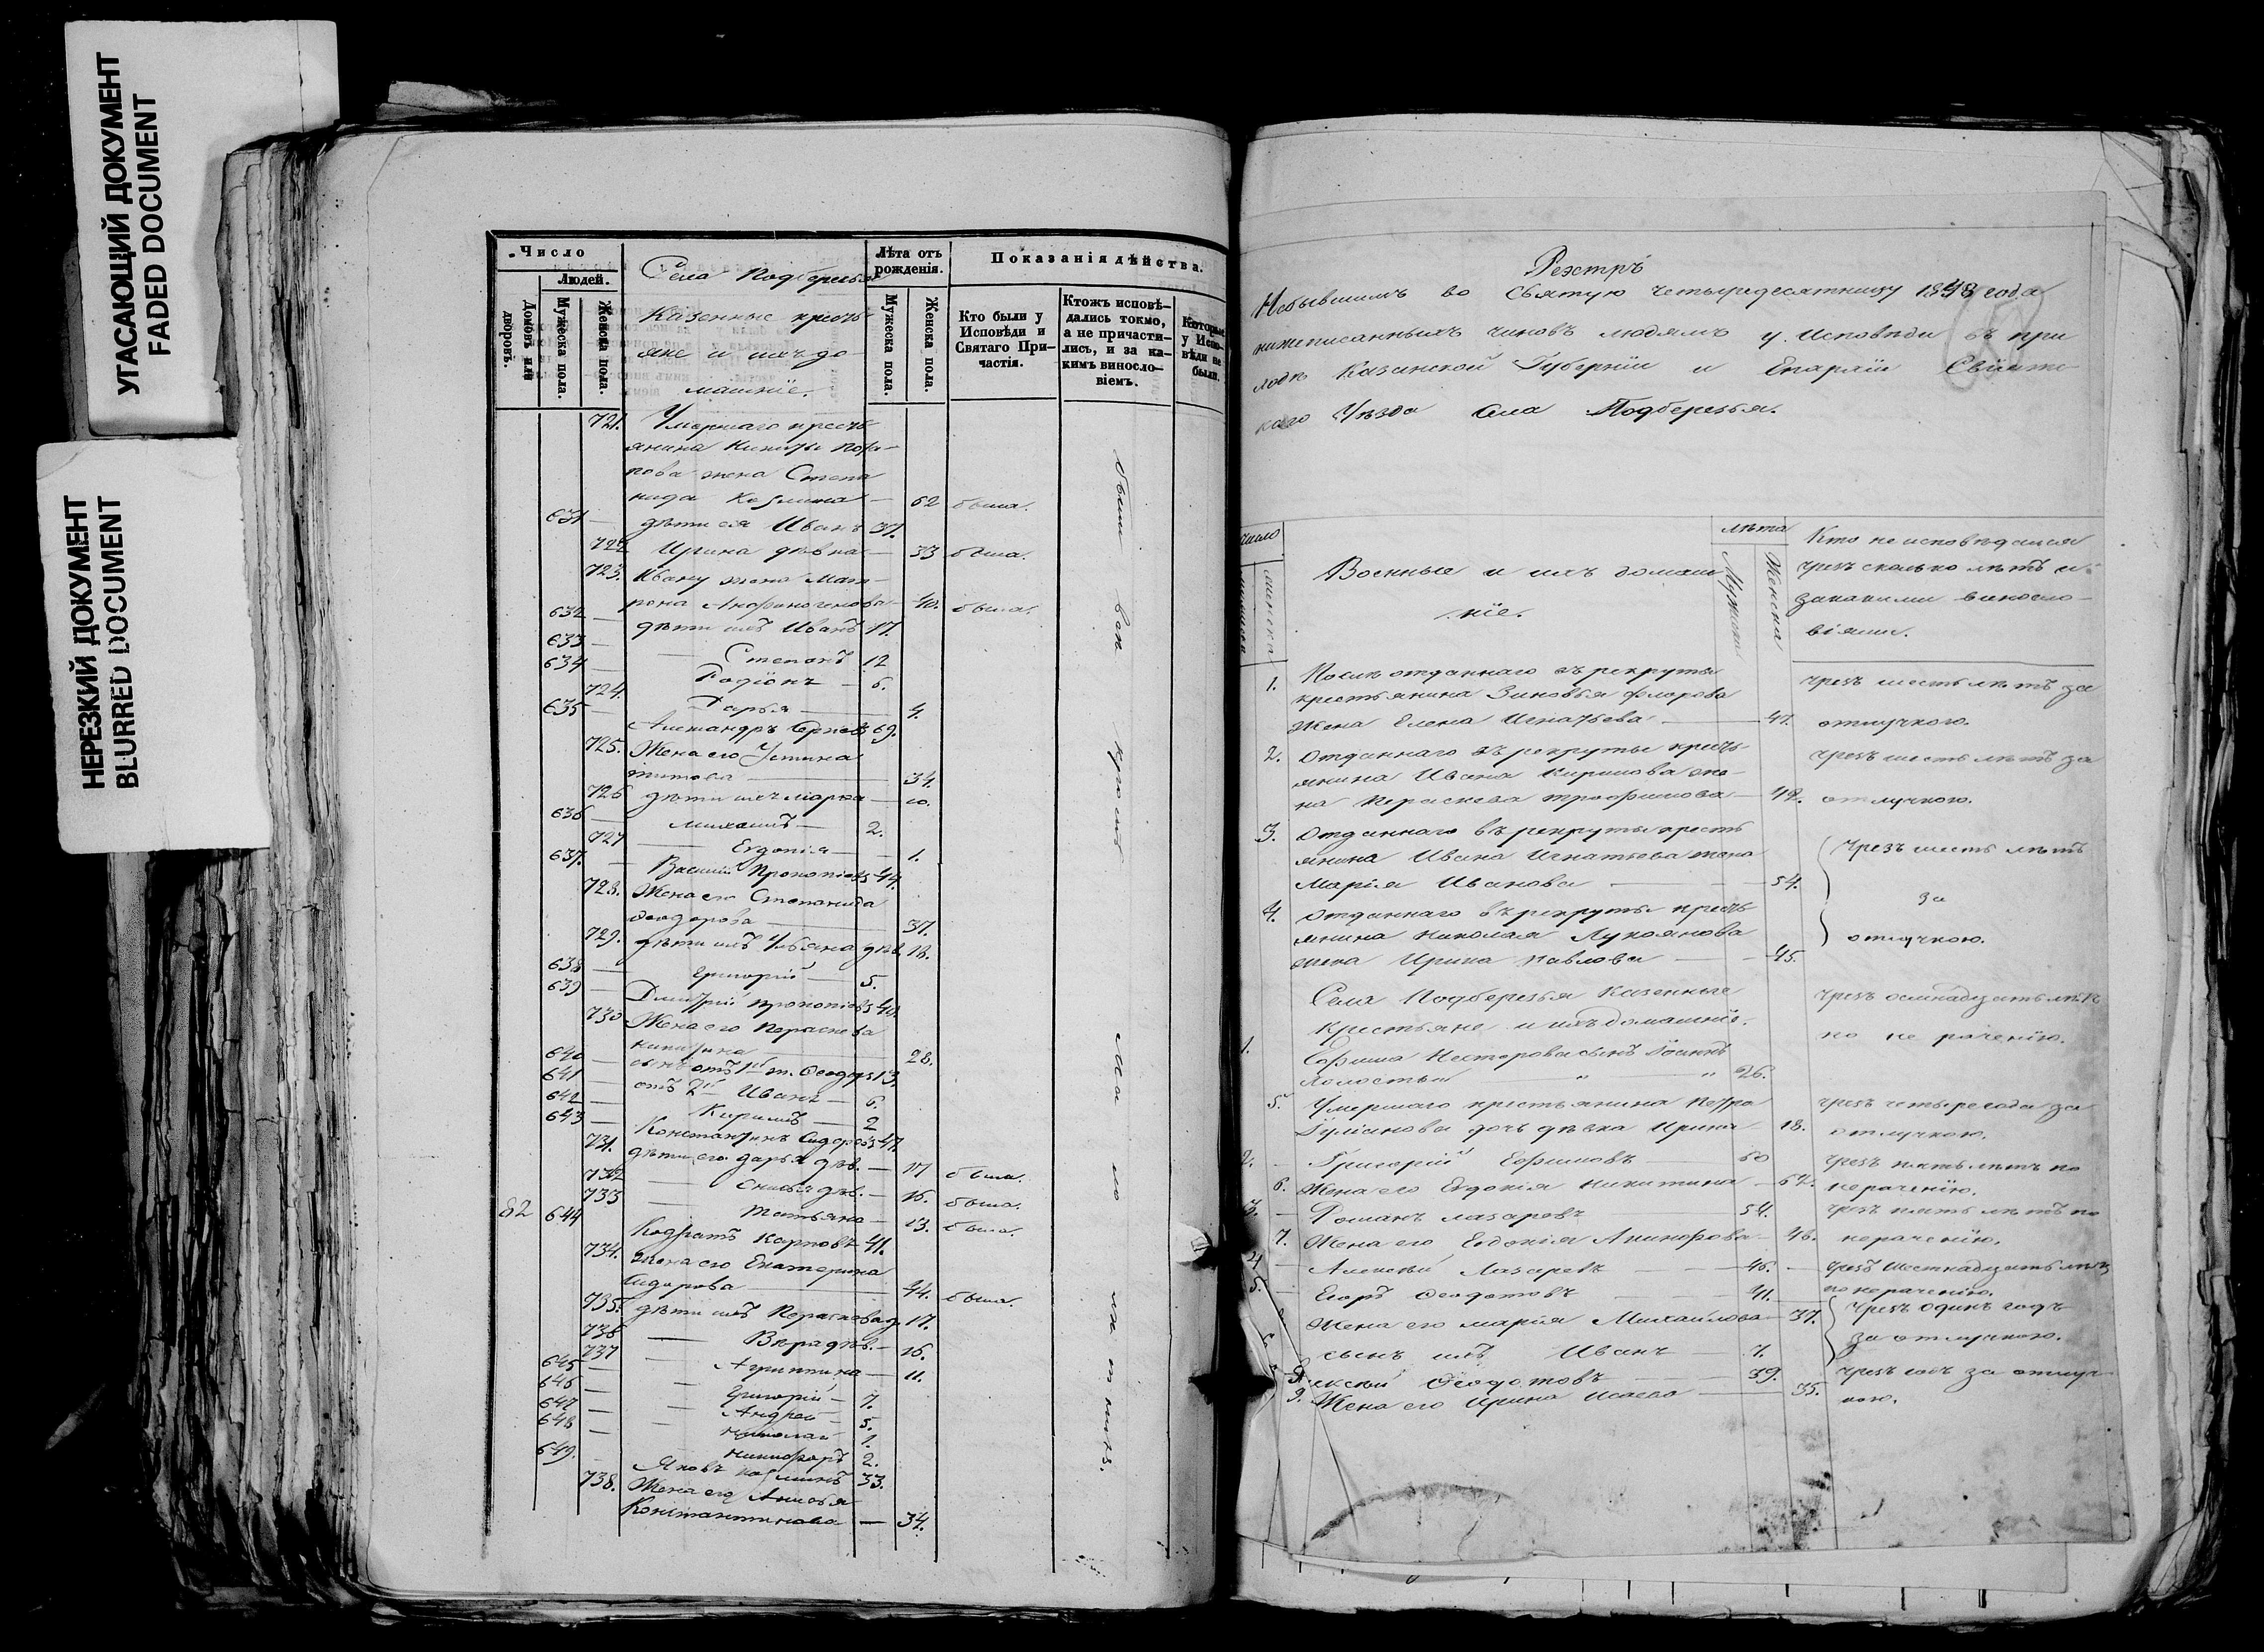 УГАСАЮЩИЙ ДОКУМЕНТ
FADED DOCUMENT
НЕРЕЗКИЙ ДОКУМЕНТ
BLURRED DOCUMENT
Число
Людей.
Домовъ или дворовъ.
Мужеска пола.
Женска пола.
Села Подберезья
Казенные кресть-
яне и ихъ до-
машніе.
Лѣта отъ рожденія.
Мужеска пола.
Женска пола.
Показанія дѣйства.
Кто были у Исповѣди и Святаго При-частія.
Ктожъ исповѣ-дались токмо, а не причасти-лись, и за ка-кимъ винослo-віемъ.
Которые у Испо-вѣди не были.
721. Умершаго кресть-
янина Никиты Пота-
пова жена Степа
нида Козмина — 62 была.
631 — дѣти ея Иванъ 37.
722 Ирина дѣвка — 33 была.
723. Ивану жена Мат-
рена Анфиногенова — 40. была.
632 — дѣти ихъ Иванъ 17.
633 — Степанъ 12
634 — Родіонъ — 6.
724. Дарья — 4.
635 — Александръ Сергеевъ 69.
725. Жена его Устина
Титова — 34.
726 дѣти ихъ Марѳа — 10.
636 — Михаилъ — 2.
727 — Евдокія — 1.
637. — Василій Прокопіевъ 44.
728. Жена его Степанида
Ѳеодорова — 37.
729. дѣти ихъ Ульяна дѣв. 18.
638 — Григорій — 5.
639 — Дмитрій Прокопіевъ 40.
730 Жена его Параскева
Никитина — 28.
640 — сынъ отъ 1й ж. Ѳеодоръ 13.
641 — отъ 2й Иванъ — 6.
642 — Кирилъ — 2
643 — Константинъ Сидоровъ 47.
731. дѣти его Дарья дѣв. — 17 была.
732 — дѣв. — 16. была.
733 — Татьяна — 13. была.
82 644 Кодратъ Карповъ 41.
734. жена его Екатерина
Сидорова — 44. была.
735. дѣти ихъ Параскева д. 17.
736 — Вѣра дѣв. — 16.
737 — Агриппина — 11.
645 — Григорій — 7.
646 — Андрей — 5.
647 — Николай 1.
648 — Никифоръ 2.
649. Яковъ Козминъ 33.
738. Жена его Анисья
Константинова — 34.
были всѣ кромѣ
Реэстръ
Небывшимъ во Святую четыредесятницу 1848 года
нижеписанныхъ чиновъ людямъ у Исповѣди въ при
ходѣ Казанской Губерніи и Епархіи Свіяж
каго Уѣзда села Подберезья.
число
мужеска
женска
Военные и ихъ домаш
ніе.
лѣта
Мужеска
Женска
Кто не исповѣдался
чрезъ сколько лѣтъ и
за какими винослo-
віями.
1. Послѣ отданнаго въ рекруты
крестьянина Зиновья Флорова
жена Елена Игнатьева — 47.
чрезъ шесть лѣтъ за
отлучкою.
2. Отданнаго въ рекруты кресть-
янина Ивана Кирилова же-
на Параскева Трофимова — 42.
чрезъ шесть лѣтъ за
отлучкою.
3. Отданнаго въ рекруты кресть
янина Ивана Игнатьева жена
Марія Иванова — 54.
Чрезъ шесть лѣтъ
за
отлучкою.
4. Отданнаго въ рекруты кресть
янина Николая Лукоянова
жена Ирина Павлова — 45.
Села Подберезья Казенные
Крестьяне и ихъ домашніе.
1. Нестерова сынъ Іоаннъ
холостый " — " 26.
чрезъ осмнадцать лѣтъ
по не раченію.
5. Умершаго крестьянина Петра
Іуліанова дочь дѣвка Ирина 18.
чрезъ четыре года за
отлучкою.
2. — Григорій Ефимовъ — 60
6. Жена его Евдокія Никитина — 62.
чрезъ пять лѣтъ по
нераченію.
3. — Романъ Лазаревъ 54.
7. Жена его Евдокія Аникофова — 48.
чрезъ пять лѣтъ по
нераченію.
4 — Алексѣй Лазаревъ — 46.
чрезъ шестнадцать лѣтъ
по нераченію.
5. — Егоръ Ѳеодотовъ — 41.
Жена его Марія Михайлова — 37.
сынъ ихъ Иванъ — 7.
Чрезъ одинъ годъ
за отлучкою.
Алексѣй Ѳеодотовъ — 39.
9. Жена его Ирина Исаева — 35.
чрезъ годъ за отлуч-
кою.